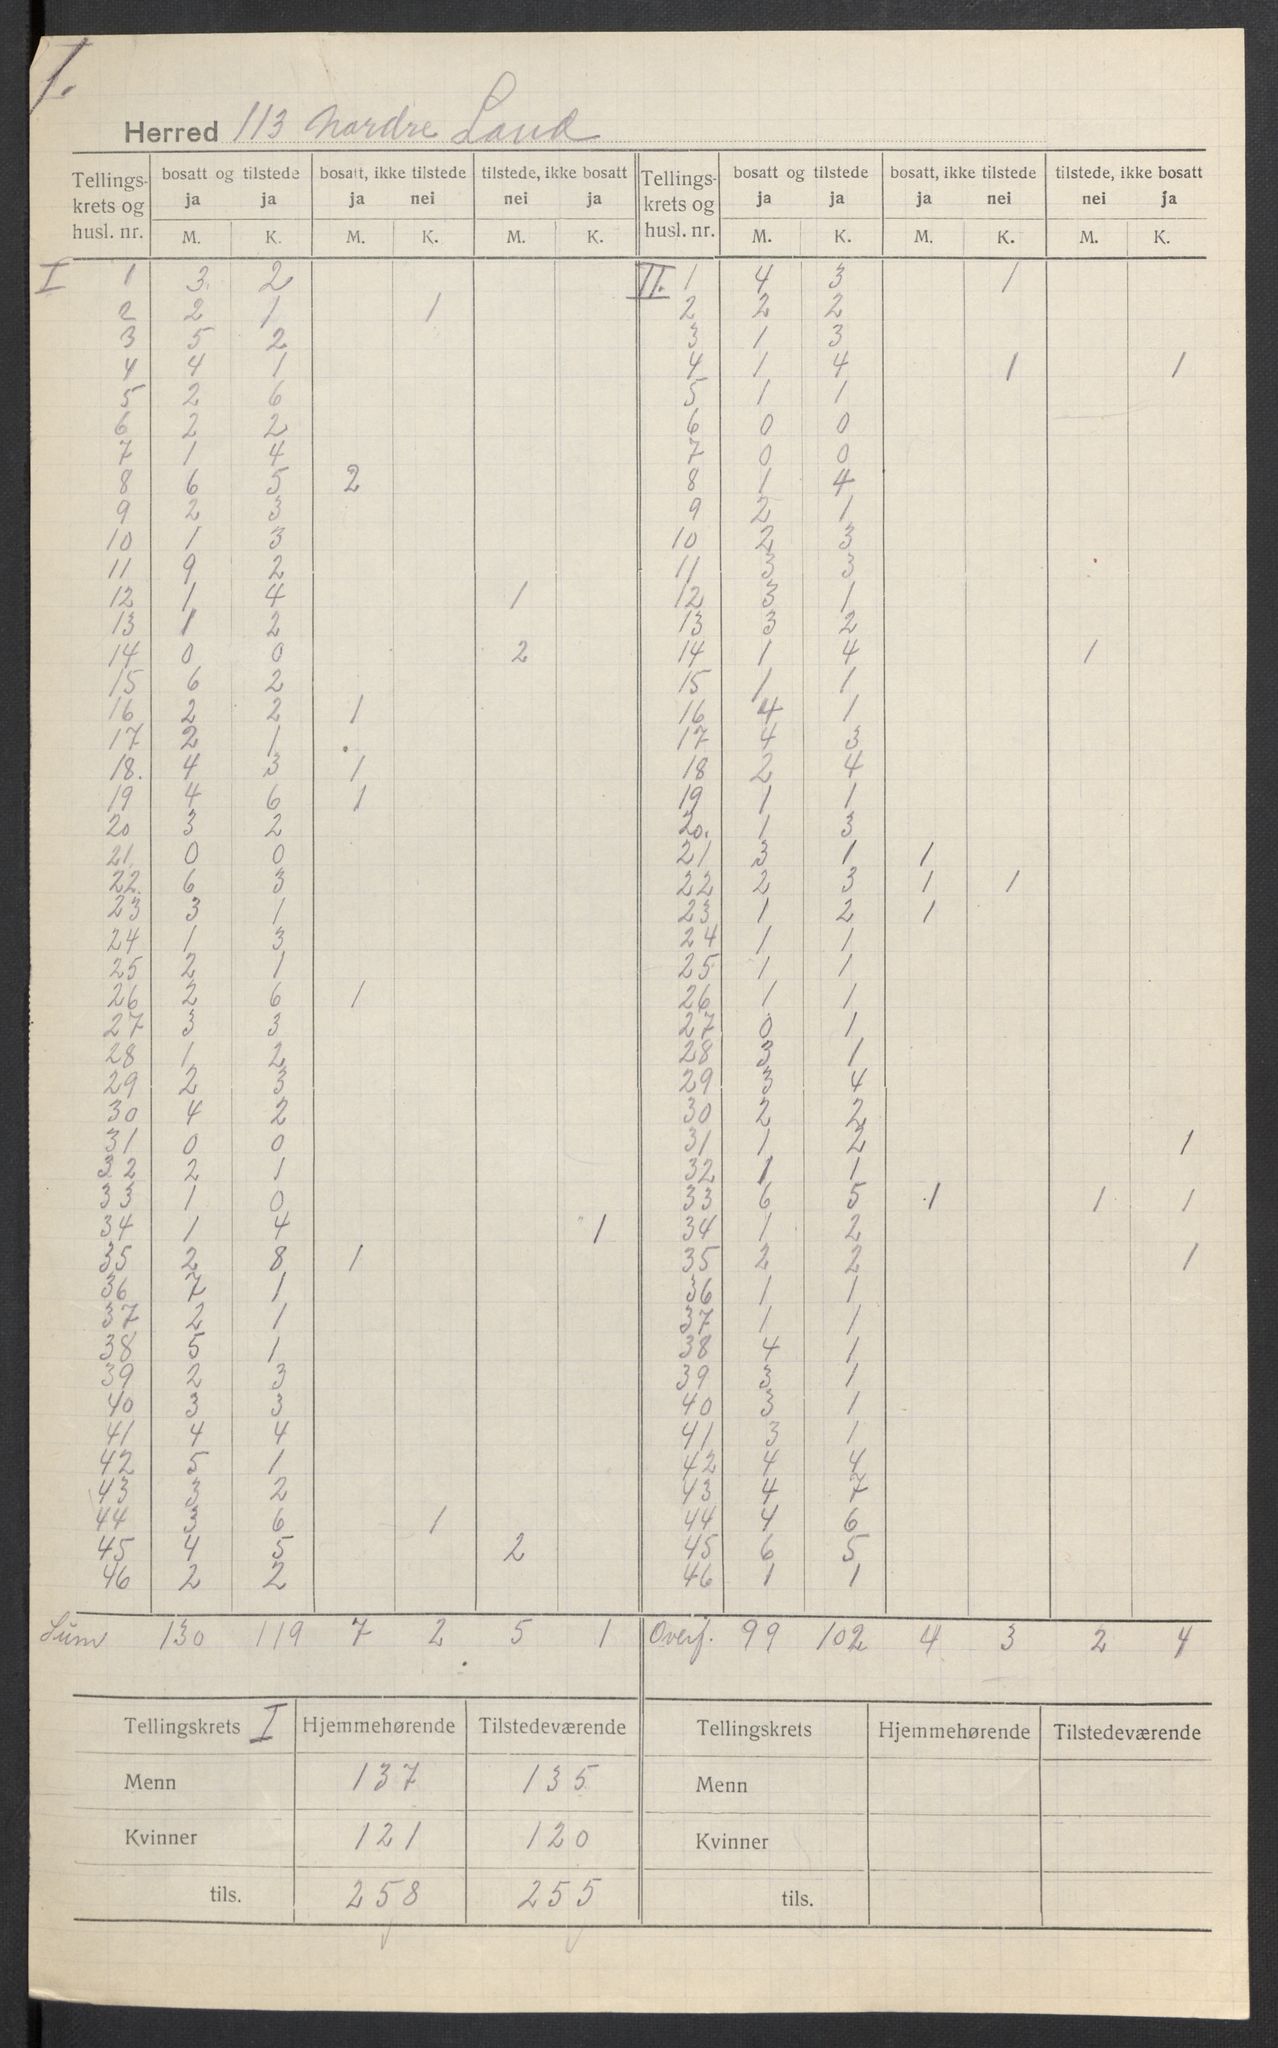 1.
Herred 113 Nordre Land
Tellings- krets og husl. nr. | bosatt og tilstede ja ja | bosatt, ikke tilstede ja nei | tilstede, ikke bosatt nei ja | Tellings- krets og husl. nr. | bosatt og tilstede ja ja | bosatt, ikke tilstede ja nei | tilstede, ikke bosatt nei ja
M. K. M. K. M. K. M. K. M. K. M. K.
I 1 3 2 II. 1 4 3 1
2 2 1 1 2 2 2
3 5 2 3 1 3
4 4 1 4 1 4 1 1
5 2 6 5 1 1
6 2 2 6 0 0
7 1 4 7 0 0
8 6 5 2 8 1 4
9 2 3 9 2 1
10 1 3 10 2 3
11 9 2 11 3 3
12 1 4 1 12 3 1
13 1 2 13 3 2
14 0 0 2 14 1 4 1
15 6 2 15 1 1
16 2 2 1 16 4 1
17 2 1 17 4 3
18. 4 3 1 18 2 4
19 4 6 1 19 1 1
20 3 2 20. 1 3
21 0 0 21 3 1 1
22. 6 3 22 2 3 1 1
23 3 1 23 1 2 1
24 1 3 24 1 1
25 2 1 25 1 1
26 2 6 1 26 1 1
27 3 3 27 0 1
28 1 2 28 3 1
29 2 3 29 3 4
30 4 2 30 2 2
31 0 0 31 1 2 1
32 2 1 32 1 1
33 1 0 33 6 5 1 1 1
34 1 4 1 34 1 2
35 2 8 1 35 2 2 1
36 7 1 36 1 1
37 2 1 37 1 1
38 5 1 38 4 1
39 2 3 39 3 1
40 3 3 40 3 1
41 4 4 41 3 1
42 5 1 42 4 4
43 3 2 43 4 7
44 3 6 1 44 4 6
45 4 5 2 45 6 5
46 2 2 46 1 1
Sum 130 119 7 2 5 1 Overf. 99 102 4 3 2 4
Tellingskrets I Hjemmehørende Tilstedeværende Tellingskrets Hjemmehørende Tilstedeværende
Menn 137 135 Menn
Kvinner 121 120 Kvinner
tils. 258 255 tils.